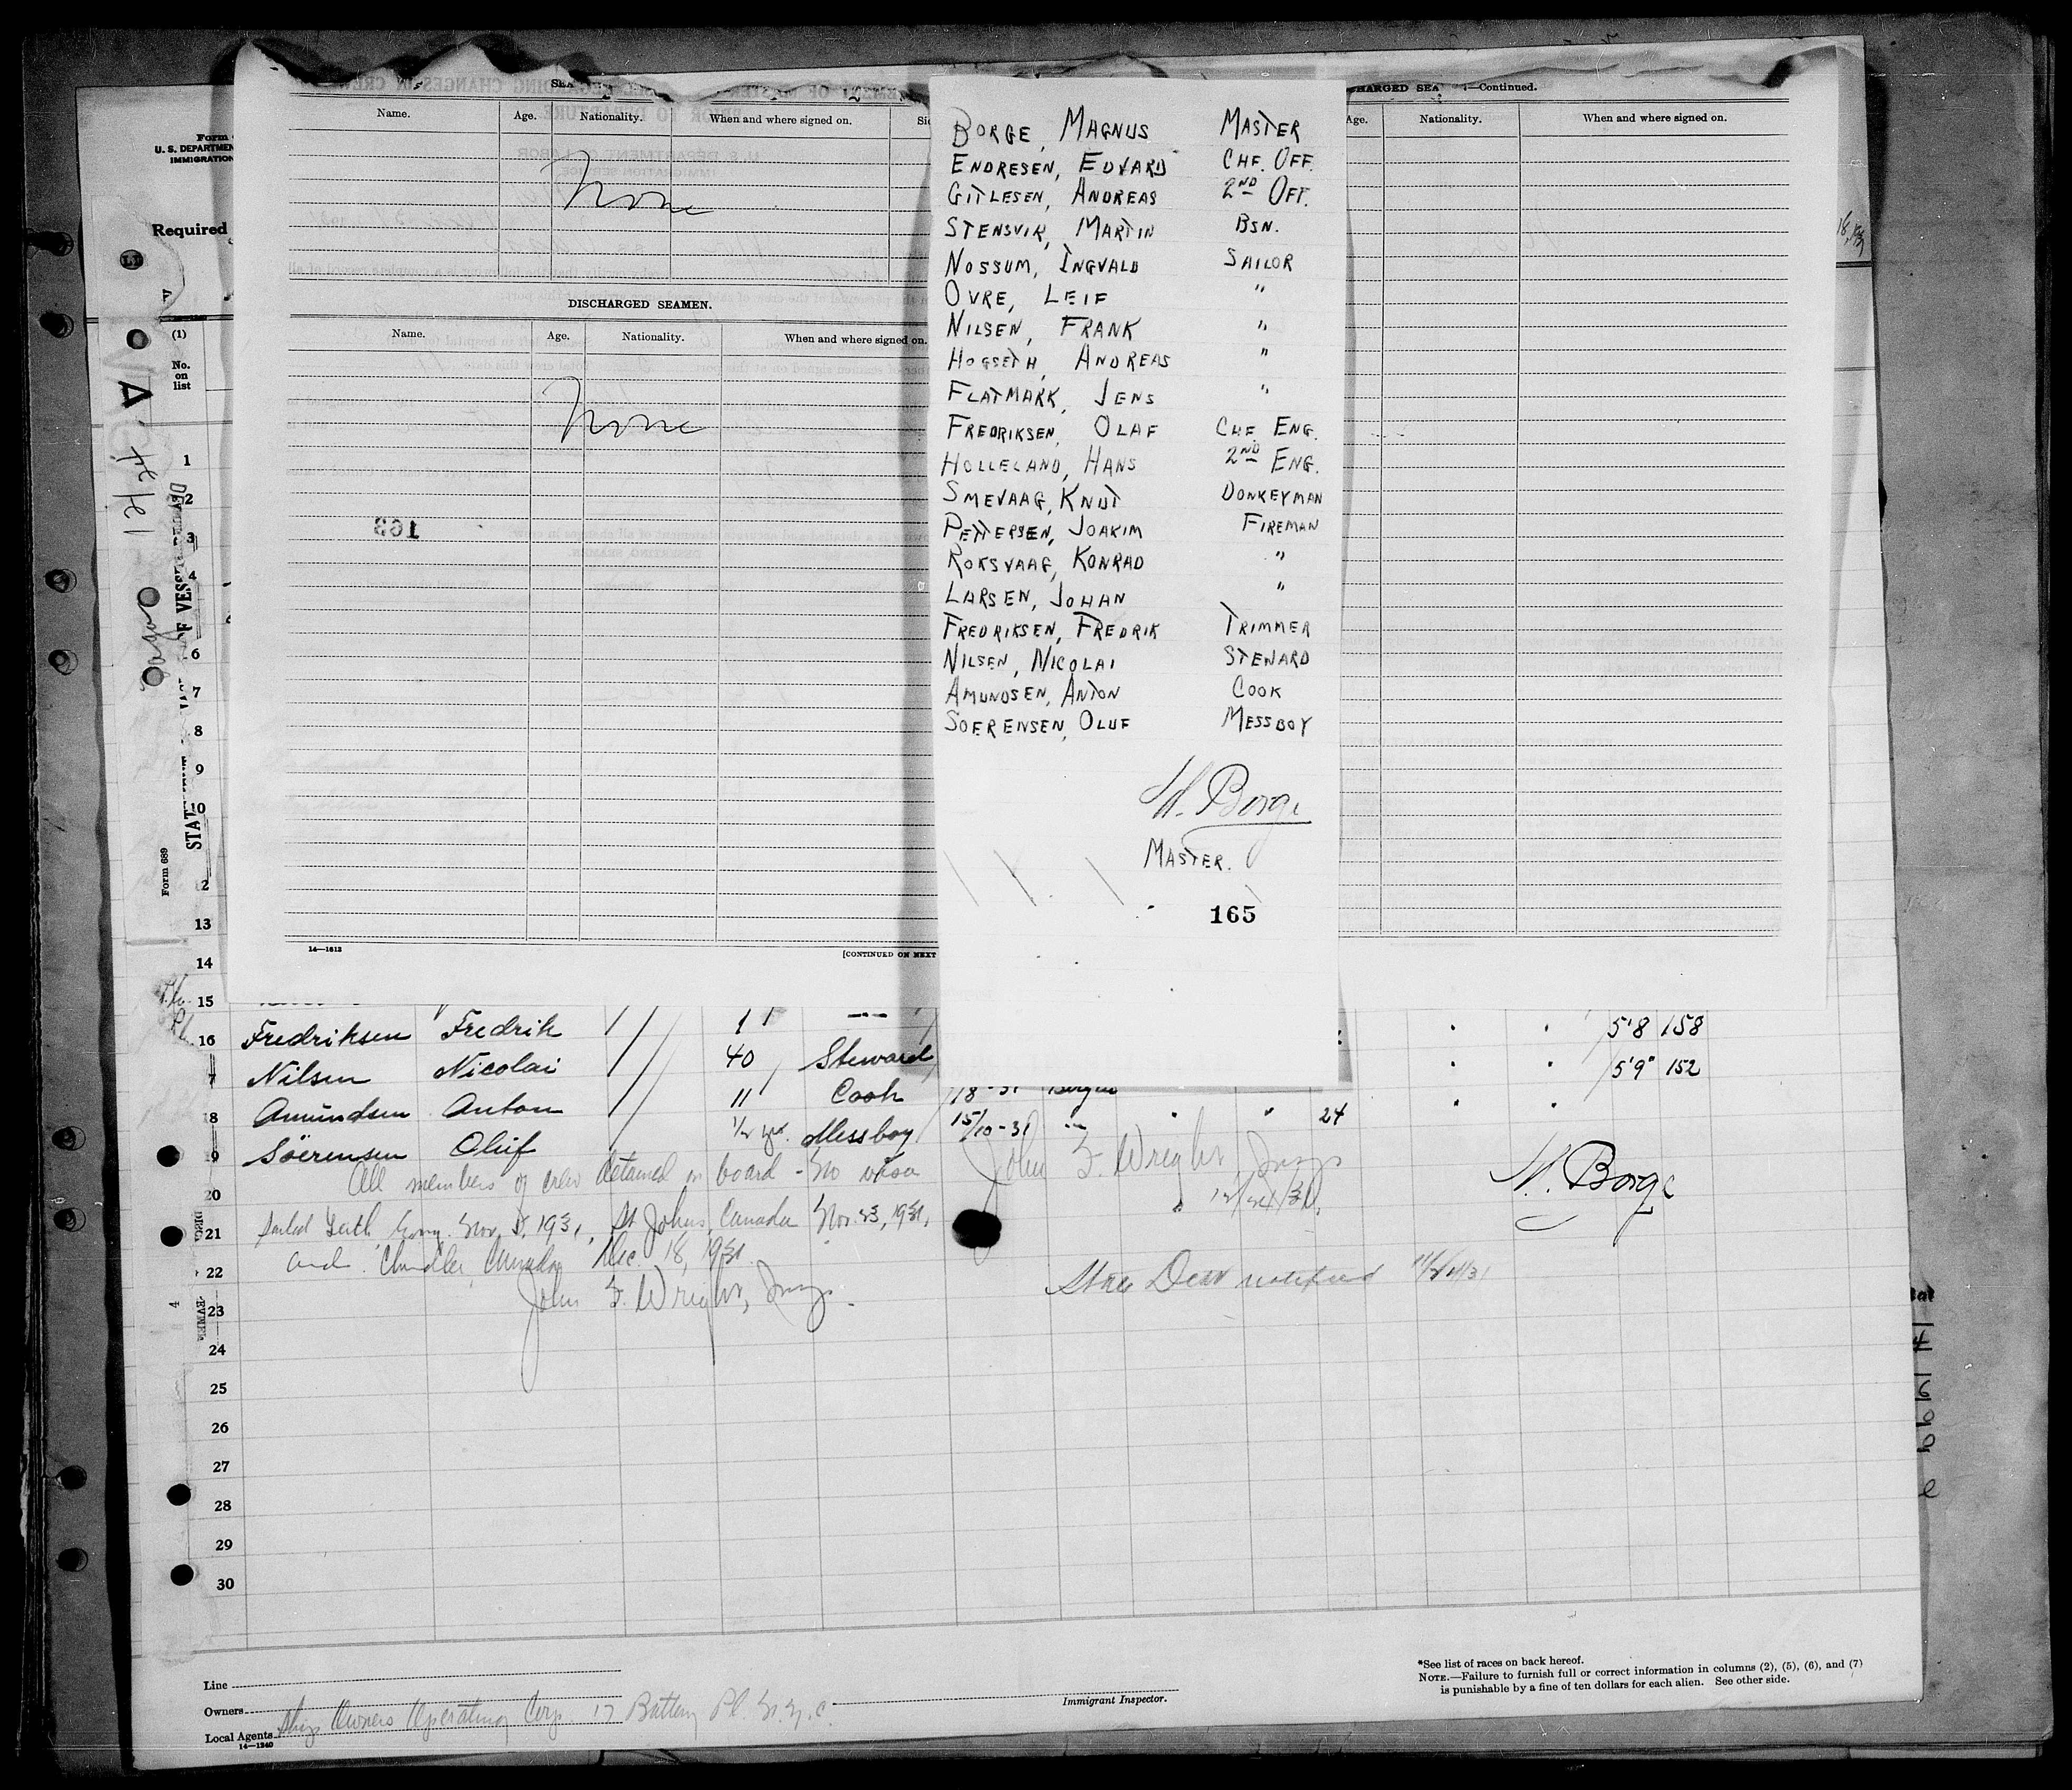 Form
U. S. DEPARTMEN
IMMIGRATION
Required
(1)
No.
on
list
Name. Age. Nationality. When and where signed on.
None
DISCHARGED SEAMEN.
Name. Age. Nationality. When and where signed on.
None
163
14—1612
[CONTINUED ON NEXT
CHARGED SEA —Continued.
Age. Nationality. When and where signed on.
BORGE, MAGNUS MASTER
ENDRESEN, EDVARD CHF. OFF.
GITLESEN, ANDREAS 2ND OFF.
STENSVIK, MARTIN BSN.
NOSSUM, INGVALD SAILOR
OVRE, LEIF "
NILSEN, FRANK "
HOGSETH, ANDREAS "
FLATMARK, JENS "
FREDRIKSEN, OLAF CHF. ENG.
HOLLELAND, HANS 2ND ENG.
SMEVAAG, KNUT DONKEYMAN
PETTERSEN, JOAKIM FIREMAN
ROKSVAAG, KONRAD "
LARSEN, JOHAN "
FREDRIKSEN, FREDRIK TRIMMER
NILSEN, NICOLAI STEWARD
AMUNDSEN, ANTON COOK
SOERENSEN, OLUF MESSBOY
M. Borge
MASTER.
165
Form 689
1
2
3
4
6
7
8
9
10
12
13
14
15
16 Fredriksen Fredrik 5'8 158
7 Nilsen Nicolai 40 Steward 5'9" 152
8 Amundsen Anton 11 Cook /8-31 Bergen
9 Söerensen Oluf 1/2 yr. Messboy 15/10-31 " " 24
All members of crew detained on board - no visa
John F. Wright, Insp
12/24/31.
M. Borge
20
21 Sailed Leith, Nov. 5, 1931, St Johns, Canada Nov. 23, 1931,
22 and Chandler, Canada Dec. 18, 1931.
John F. Wright, Insp.
notified
23
24
25
26
27
28
29
30
Line
Owners
Local Agents Ship Owners Operating Corp. 17 Battery Pl. N.Y.C.
14—1240
Immigrant Inspector.
*See list of races on back hereof.
NOTE.—Failure to furnish full or correct information in columns (2), (5), (6), and (7)
is punishable by a fine of ten dollars for each alien. See other side.